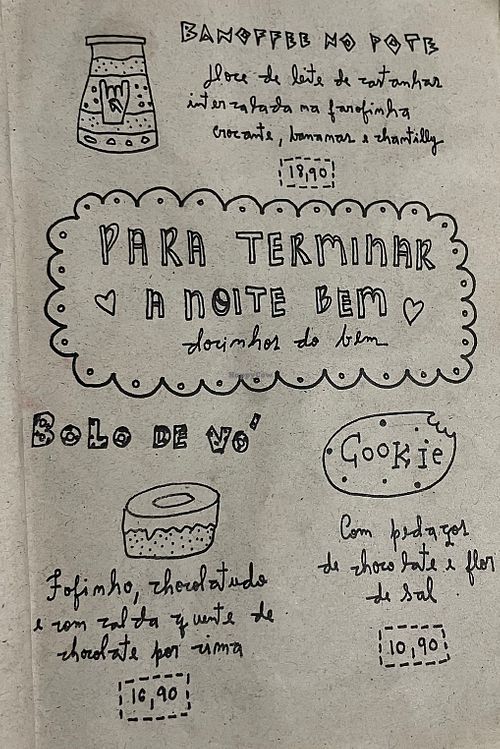 BANOFFEE NO POTE
doce de leite de castanhas
intercalada na farofinha
crocante, bananas e chantilly
18,90
PARA TERMINAR
A NOITE BEM
docinhos do bem
HappyCow
BOLO DE VÓ
COOKIE
Com pedaços
de chocolate e flor
de sal
10,90
Fofinho, chocolatudo
e com calda quente de
chocolate por cima
16,90